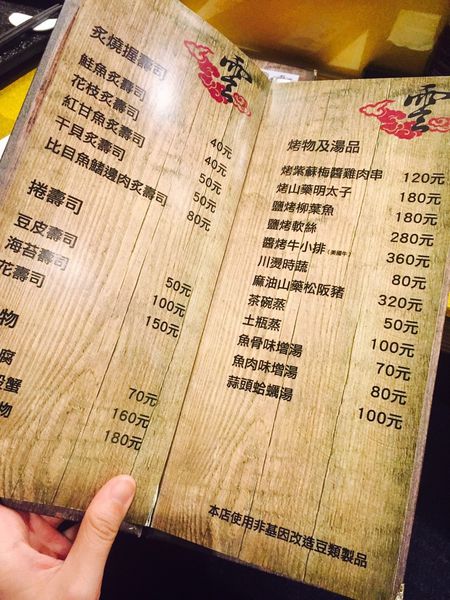 炙燒握壽司
鮭魚炙壽司 40元
花枝炙壽司 40元
紅甘魚炙壽司 50元
干貝炙壽司 50元
比目魚鰭邊肉炙壽司 80元
捲壽司
豆皮壽司 50元
海苔壽司 100元
花壽司 150元
物
腐 70元
蟹 160元
物 180元
雲
雲
烤物及湯品
烤紫蘇梅醬雞肉串 120元
烤山藥明太子 180元
鹽烤柳葉魚 180元
鹽烤軟絲 280元
醬烤牛小排(美國牛) 360元
川燙時蔬 80元
麻油山藥松阪豬 320元
茶碗蒸 50元
土瓶蒸 100元
魚骨味增湯 70元
魚肉味增湯 80元
蒜頭蛤蠣湯 100元
本店使用非基因改造豆類製品